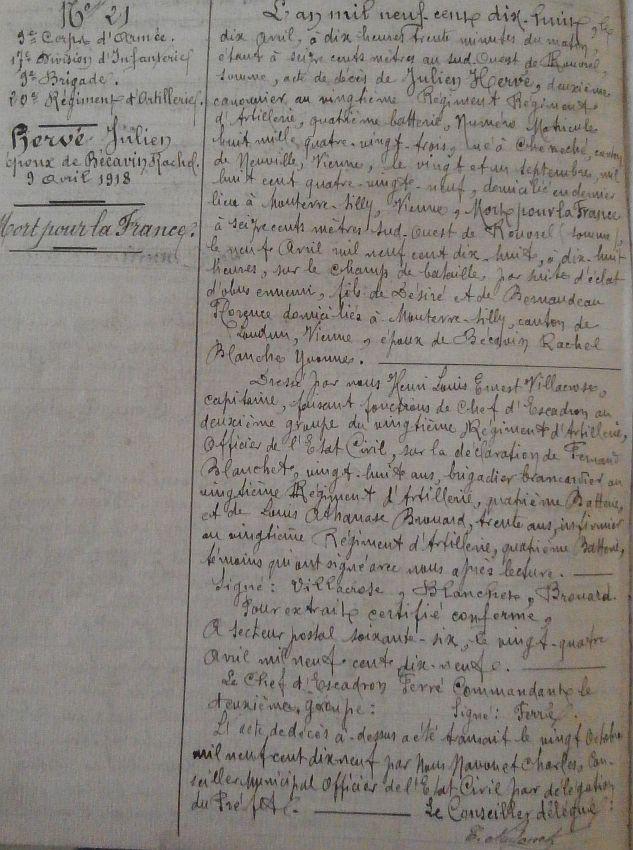 No 21
9e Corps d'Armée.
17e Division d'Infanterie
9e Brigade.
20e Régiment d'Artillerie.
Hervé Julien
époux de Bécavin Rachel.
9 avril 1918
Mort pour la France.
L'an mil neuf cent dix-huit, le
dix avril, à dix heures trente minutes du matin,
étant à seize cents mètres au sud Ouest de Rouvrel,
Somme, acte de décès de Julien Hervé, deuxième
canonnier au vingtième Régiment Régiment
d'Artillerie, quatrième batterie, Numéro Matricule
huit mille quatre-vingt-trois, né à Cheneché, canton
de Neuville, Vienne, le vingt et un septembre, mil
huit cent quatre-vingt-neuf, domicilié en dernier
lieu à Mouterre-Silly, Vienne, Mort pour la France
à seize cents mètres Sud-Ouest de Rouvrel (Somme),
le neuf Avril mil neuf cent dix-huit, à dix-huit
heures, sur le champs de bataille, par suite d'éclat
d'obus ennemi, fils de Désiré et de Bernaudeau
Florence domiciliés à Mouterre-Silly, canton de
Loudun, Vienne, époux de Bécavin Rachel
Blanche Yvonne.
Dressé par nous Henri Louis Ernest Villacrose,
capitaine, faisant fonctions de Chef d'Escadron au
deuxième groupe du vingtième Régiment d'Artillerie,
Officier de l'Etat Civil, sur la déclaration de Fernand
Blanchet, vingt-huit ans, brigadier brancardier au
vingtième Régiment d'Artillerie, quatrième Batterie,
et de Louis Athanase Brouard, trente ans, infirmier
au vingtième Régiment d'Artillerie, quatrième Batterie,
témoins qui ont signé avec nous après lecture.
Signé: Villacrose, Blanchet, Brouard.
Pour extrait certifié conforme,
A secteur postal soixante-six, le vingt-quatre
Avril mil neuf cent dix-neuf.
Le Chef d'Escadron Ferré Commandant le
deuxième groupe: Signé: Ferré.
L'acte de décès ci-dessus a été transcrit le vingt Octobre
mil neuf cent dix neuf par Nous Charles, Con-
seiller Municipal Officier de l'Etat Civil par délégation
du Préfet. Le Conseiller délégué: